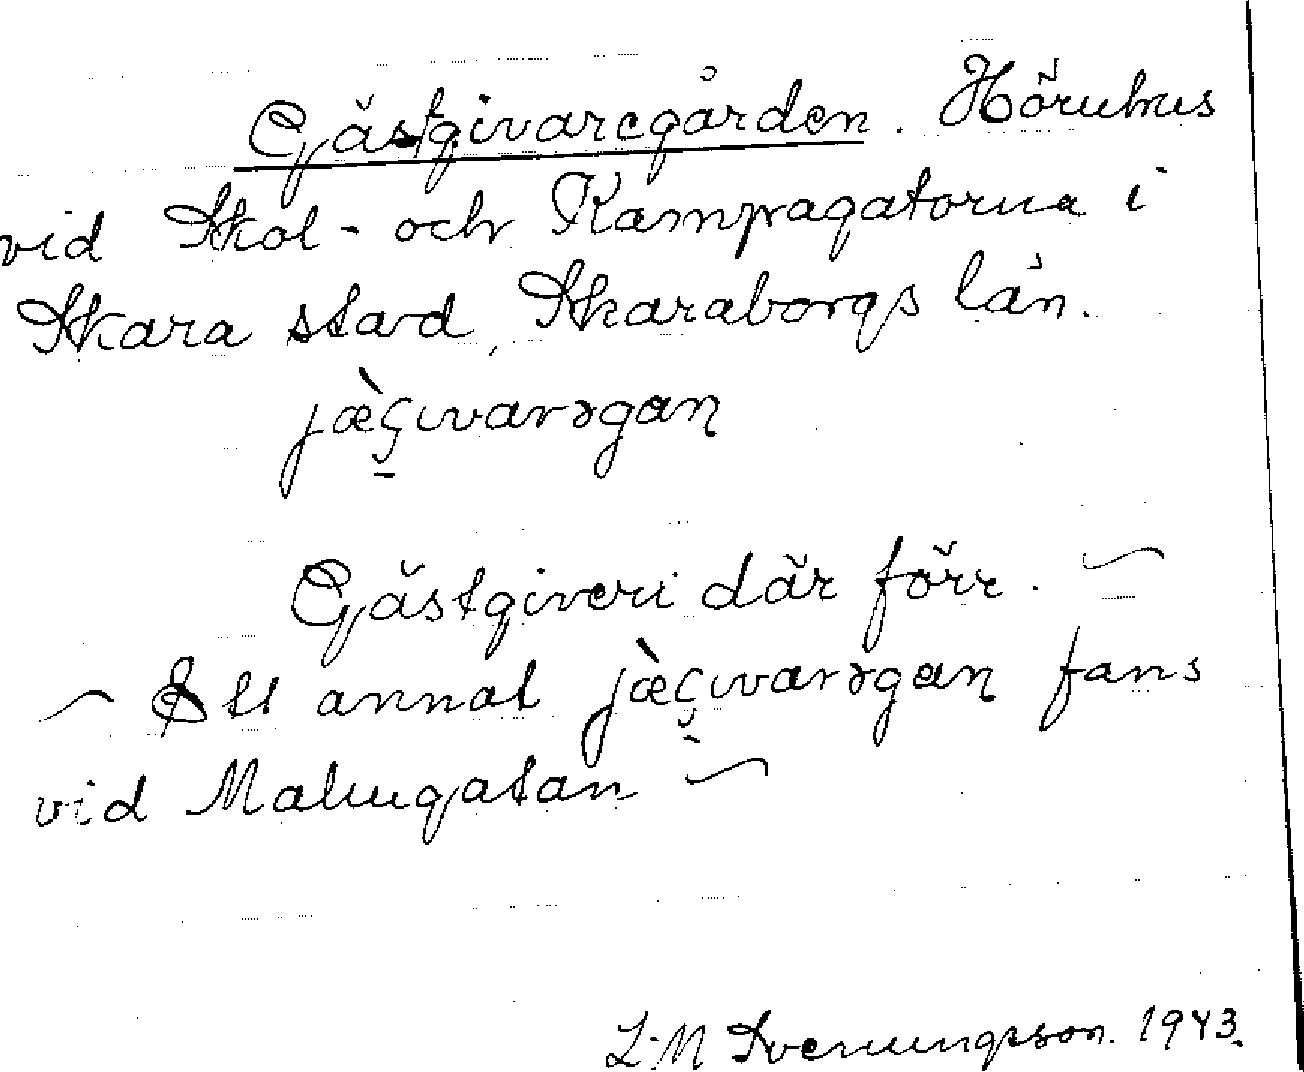 Gästgivaregården. Hörnhus
vid Skol- och Kämpagatorna i
Skara stad, Skaraborgs län.
jæ̀ςıvarəgan̨
Gästgiveri där förr. ~
~ Ett annat jæ̀ςıvarəgan̨ fans
vid Malmgatan ~
L.M Svenungsson. 1943.